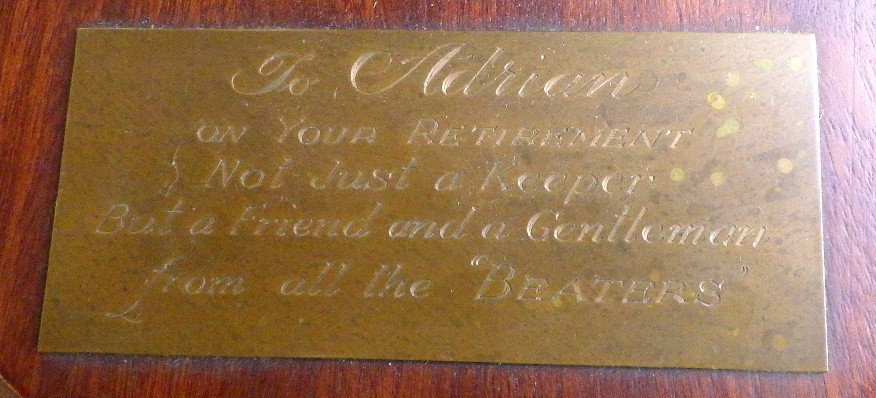 To Adrian
ON YOUR RETIREMENT
Not Just a Keeper
But a Friend and a Gentleman
from all the "BEATERS"